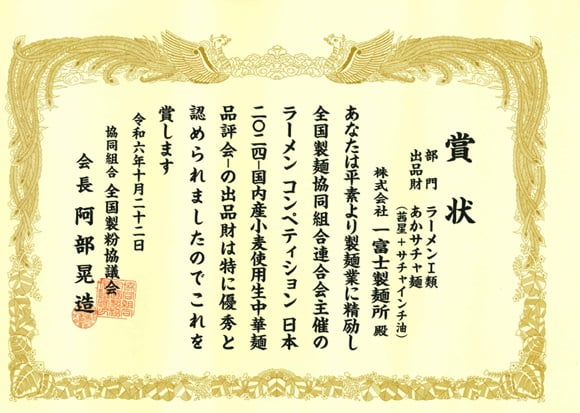 賞状
部門 ラーメンⅠ類
出品財 あかサチャ麺
(茜星+サチャインチ油)
株式会社 一富士製麺所 殿
あなたは平素より製麺業に精励し
全国製麺協同組合連合会主催の
ラーメン コンペティション 日本
二〇二四-国内産小麦使用生中華麺
品評会-の出品財は特に優秀と
認められましたのでこれを
賞します
令和六年十月二十二日
協同組合 全国製粉協議会
会長 阿部晃造